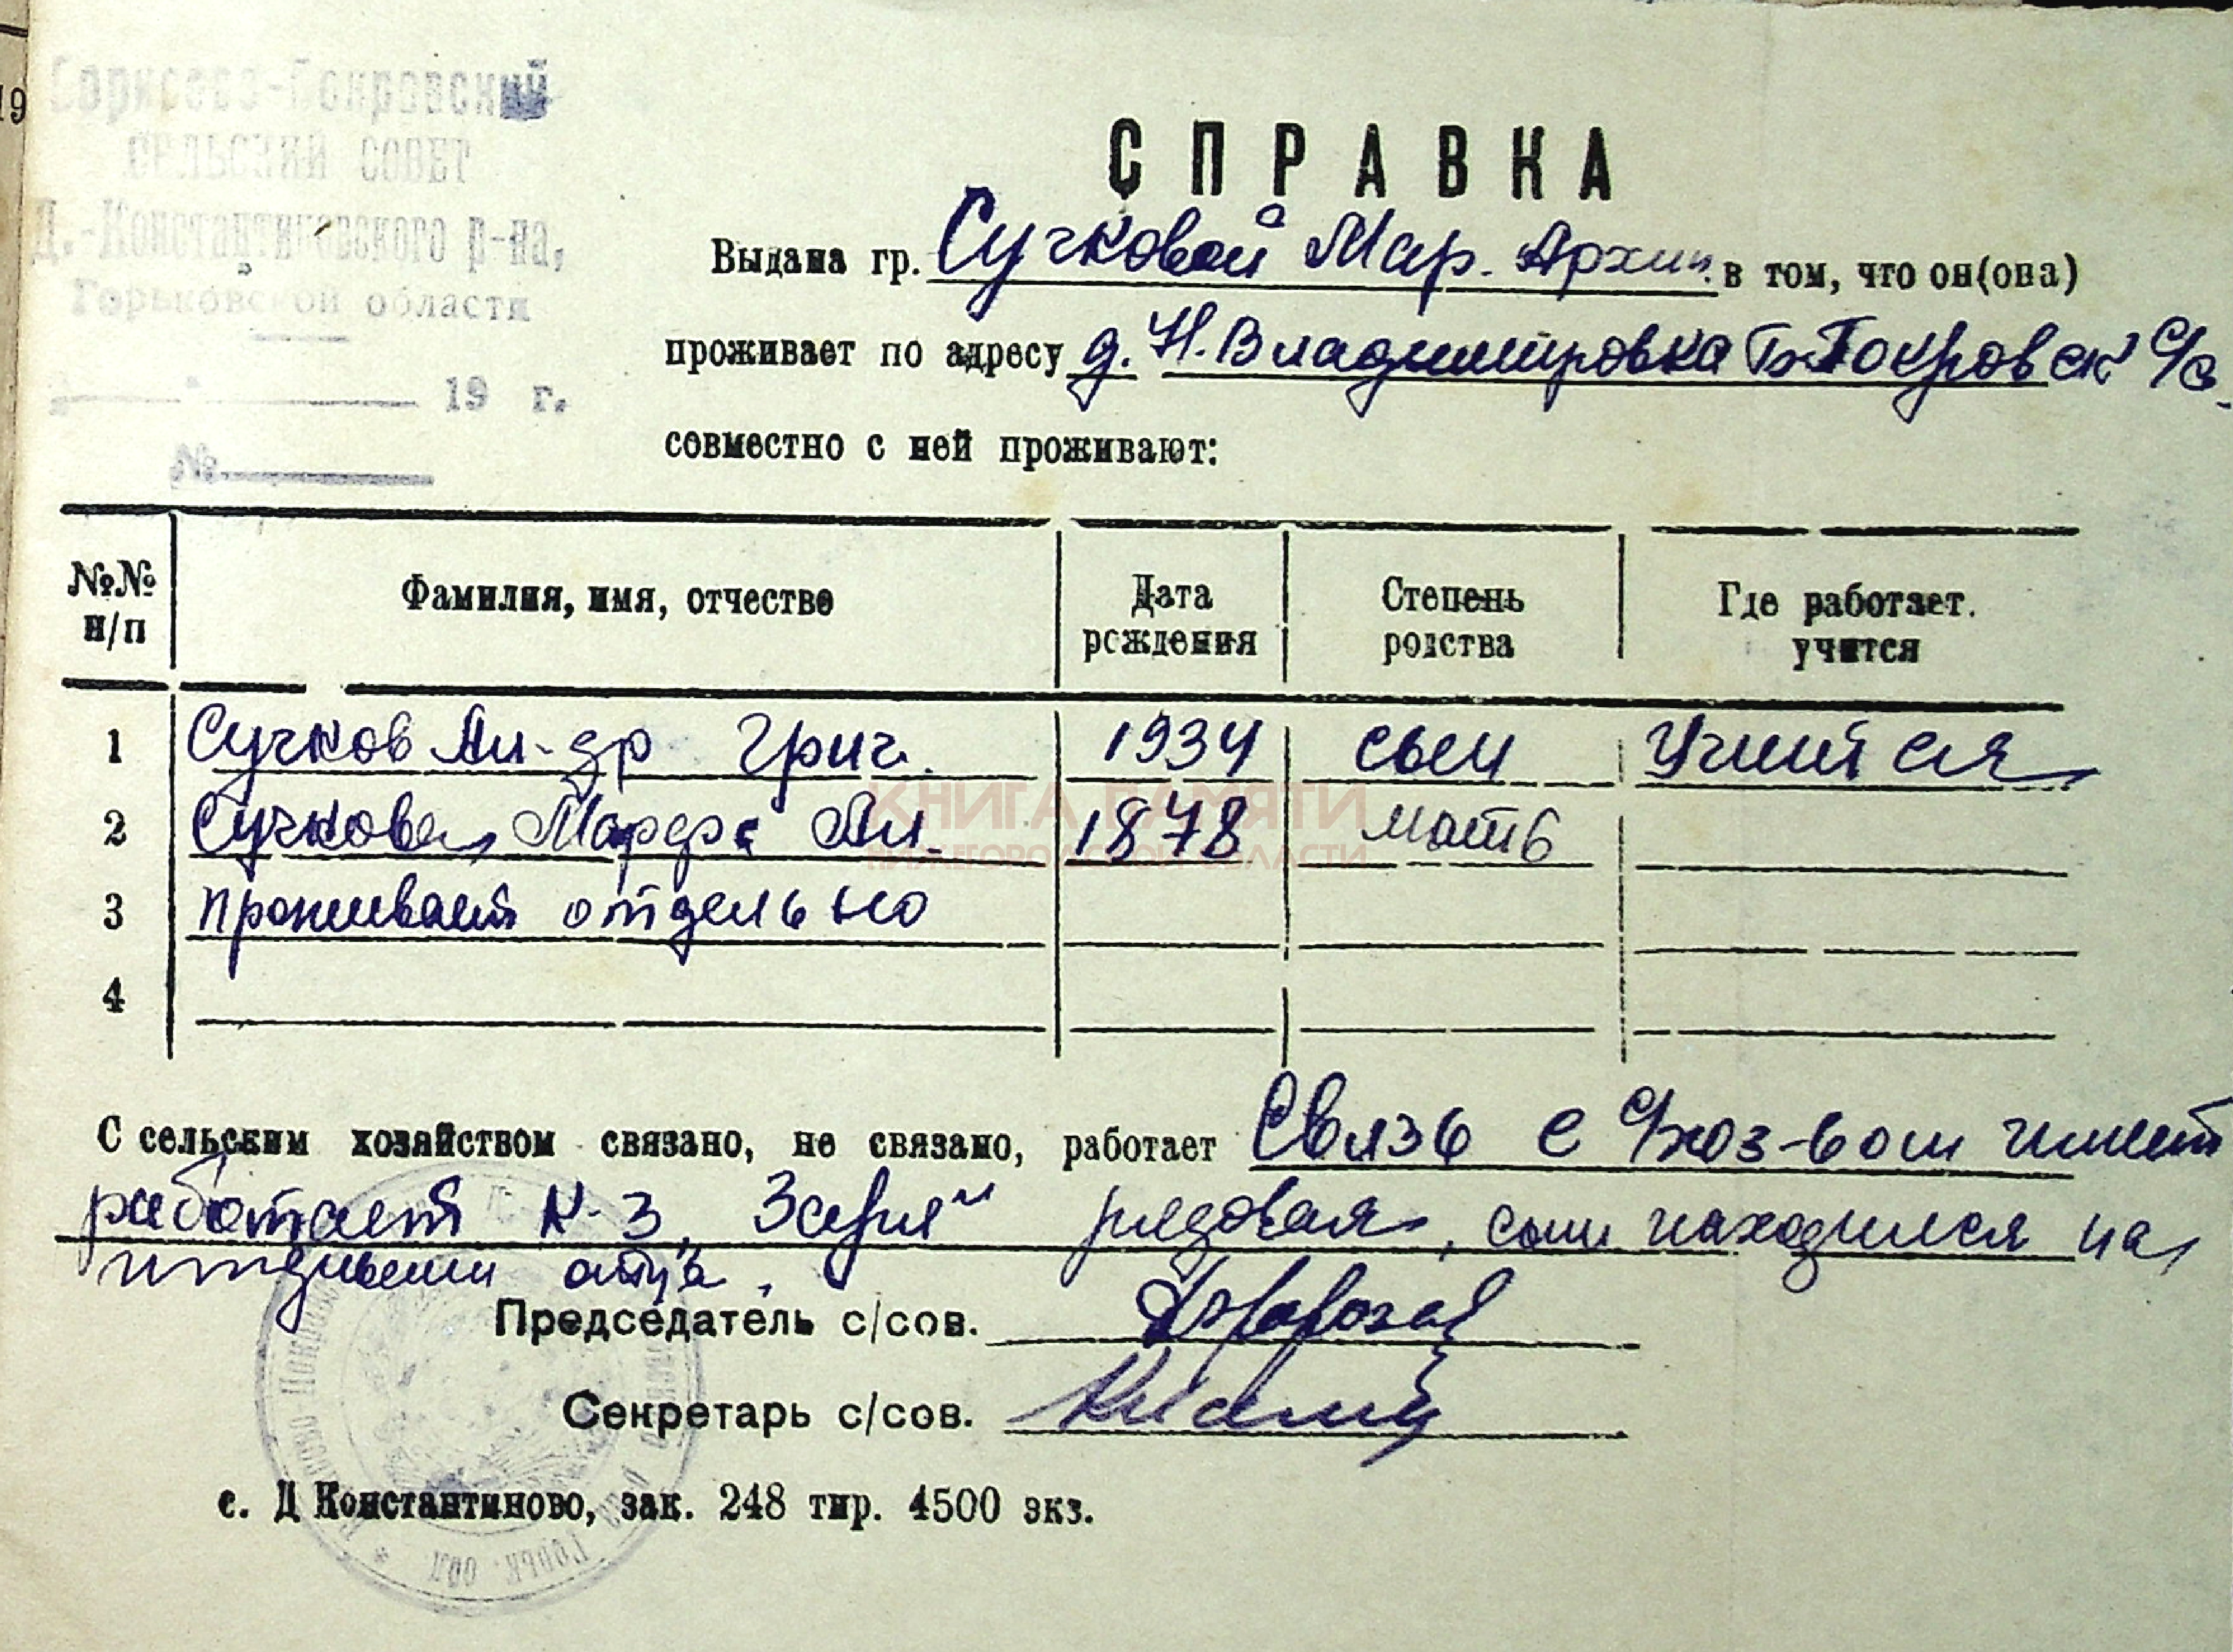 19
Борисово-Покровский
СЕЛЬСКИЙ СОВЕТ
Д.-Константиновского р-на,
Горьковской области
19 г.
№
СПРАВКА
Выдана гр. Сучковой Мар. Архип. в том, что он(она)
проживает по адресу д. Н. Владимировка Б-Покровск с/с.
совместно с ней проживают:
№№ п/п Фамилия, имя, отчество Дата рождения Степень родства Где работает. учится
1 Сучков Ал-др Григ. 1934 сын Учится
2 Сучкова Марфа Ал. 1878 мать
3 проживает отдельно
4
КНИГА ПАМЯТИ
НИЖЕГОРОДСКОЙ ОБЛАСТИ
С сельским хозяйством связано, не связано, работает Связь с с/хоз-вом имеет
работает к-з „Заря" рядовая, сын находился на
иждивении отца.
Председатель с/сов.
Секретарь с/сов.
с. Д Константиново, зак. 248 тир. 4500 экз.